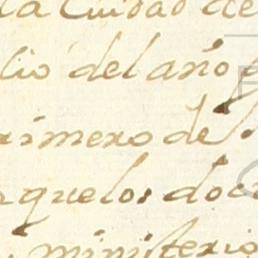 la Ciudad de
lio del año
rimero de
quelos doc
ministerio